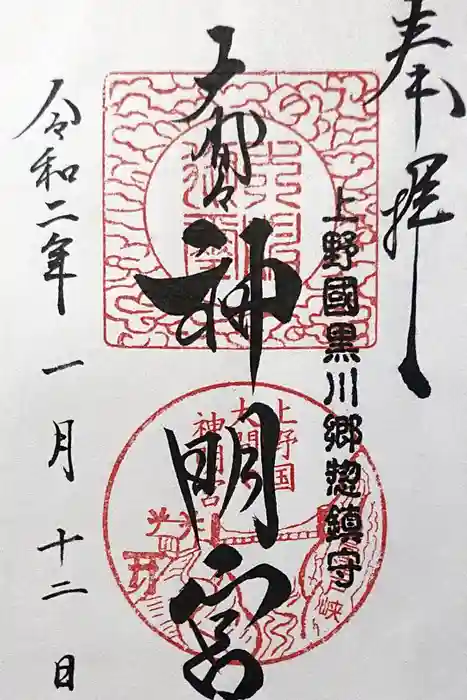 奉拝
上野國黒川郷惣鎮守
大間々
神明宮
上野国
大間々
神明宮
峡
令和二年一月十二日